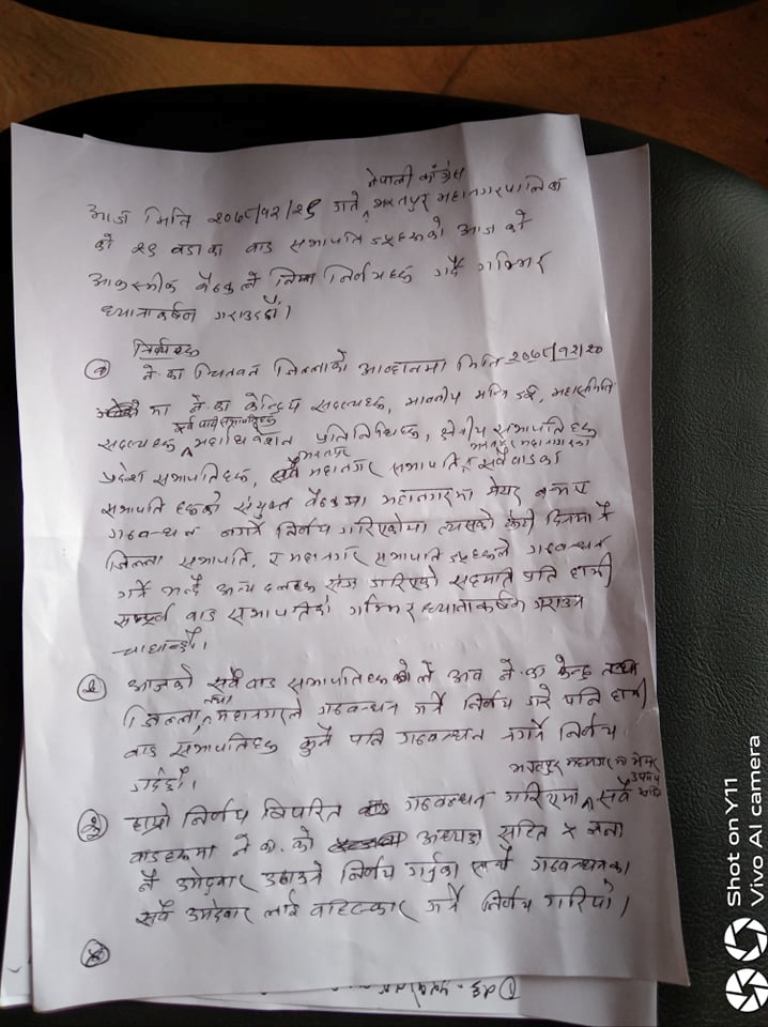 नेपाली काँग्रेस
आज मिति २०७८/१२/२९ गते भरतपुर महानगरपालिका
को २९ वडाका वाड सभापति ज्यूहरूको आज को
आकस्मीक बैठकले निम्न निर्णयहरू गर्दै गम्भिर
ध्यानाकर्षण गराउदछौं।
निर्णयहरू
(१) ने.का चितवन जिल्लाको आव्हानमा मिति २०७८/१२/२०
मा ने.का केन्द्रिय सदस्यहरू, माननीय मन्त्रि ज्यू, महासमिति
सदस्यहरू महाधिवेशन प्रतिनिधिहरू, क्षेत्रीय सभापतिहरू
भरतपुर भरतपुर महानगरका
प्रदेश सभापतिहरू, महानगर सभापति, सवै वाडका
सभापति हरूको संयुक्त बैठकमा महानगरमा मेयर
गठवन्धन नगर्ने निर्णय गरिएकोमा त्यसको केही दिनमा नै
जिल्ला सभापति, र महानगर सभापति ज्यूहरूले गठवन्धन
गर्ने भन्दै अन्य दलहरू गरिएको सहमति प्रति हामी
सम्पूर्ण वाड सभापतिको गम्भिर ध्यानाकर्षण गराउन
चाहान्छौं।
(२) आजको सवै वाड सभापतिहरूको ले अव ने.का केन्द्र
तथा
जिल्ला, महानगरले गठवन्धन गर्ने निर्णय गरे पनि हामी
वाड सभापतिहरू कुनै पनि गठवन्धन नगर्ने निर्णय
गर्दछौं।
भरतपुर महानगर का मेयर
उपमेयर
(३) हाम्रो निर्णय विपरित गठवन्धन गरिएमा सवै
वाडहरूमा ने.का.को अध्यक्ष सहित ५ जना
नै उमेदवार उठाउने निर्णय गर्नुका साथै गठवन्धनका
सवै उमेदवार लाई वहिस्कार गर्ने निर्णय गरियो।
(४)
Shot on Y11
Vivo AI camera